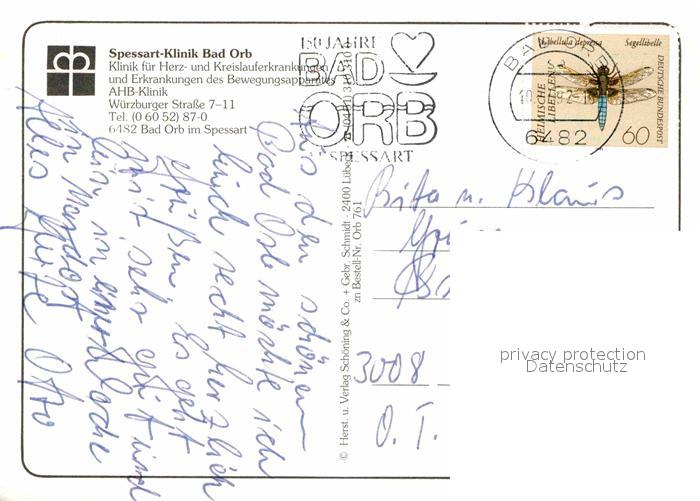 Spessart-Klinik Bad Orb
Klinik für Herz- und Kreislauferkrankungen
und Erkrankungen des Bewegungsapparates
AHB-Klinik
Würzburger Straße 7–11
Tel. (0 60 52) 87-0
6482 Bad Orb im Spessart
150 JAHRE
BAD
ORB
SPESSART
BAD ORB
6482
Libellula depressa Segellibelle
HEIMISCHE
LIBELLEN
DEUTSCHE BUNDESPOST
60
Aus dem schönen
Bad Orb möchte ich
Euch recht herzlich
grüßen Es geht
mir sehr gut und
bin in einer Woche
in
Alles Gute Otto
© Herst. u. Verlag Schöning & Co. + Gebr. Schmidt - 2400 Lübeck
zu Bestell-Nr. Orb 761
Brita u. Klaus
3008
O. T.
privacy protection
Datenschutz